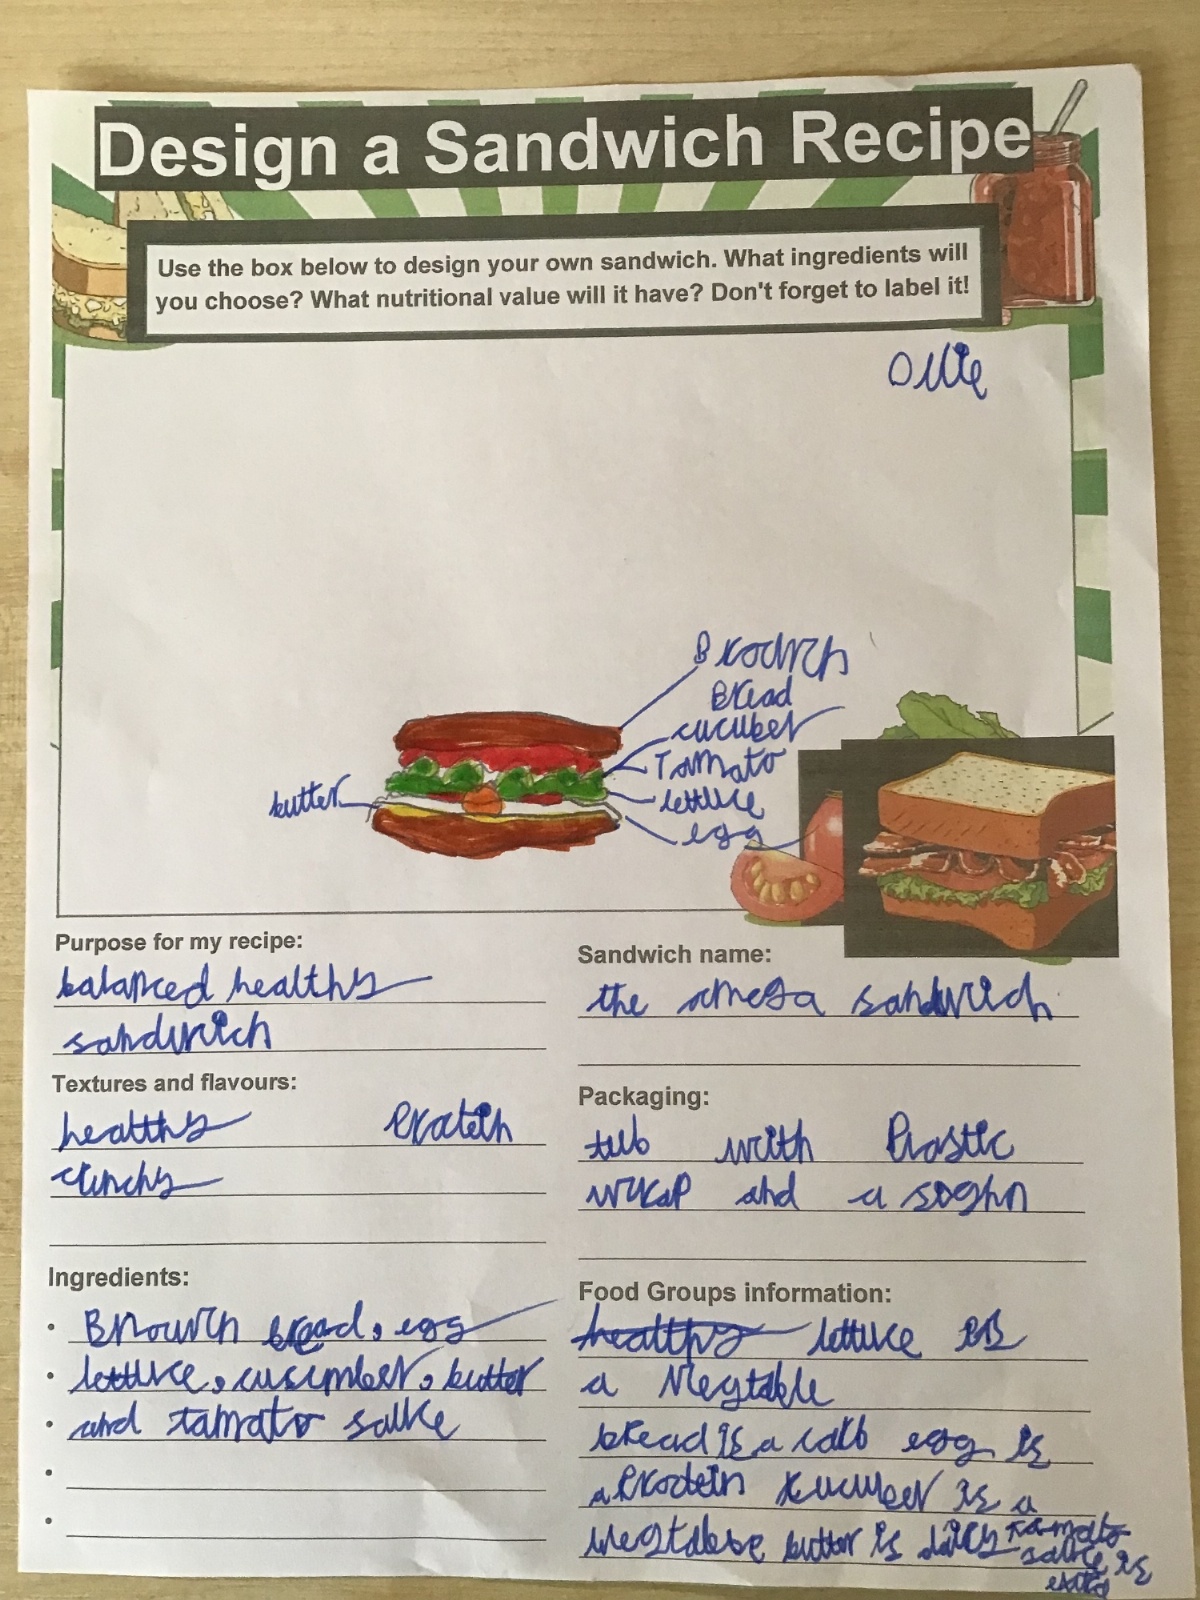 Design a Sandwich Recipe
Use the box below to design your own sandwich. What ingredients will
you choose? What nutritional value will it have? Don't forget to label it!
Ollie
Bread
cucuber
Tomato
butter
lettuce
egg
Purpose for my recipe:
balanced healthy
sandwich
Sandwich name:
the omega sandwich
Textures and flavours:
healthy Protein
crunchy
Packaging:
tub with Plastic
wrap and a
Ingredients:
bread, egg
lettuce, cucumber, butter
and tamato sauce
Food Groups information:
healthy lettuce
a Vegtable
bread is a carb egg is
a Protein cucuber is a
butter is dairy tamato
sauce is
extra